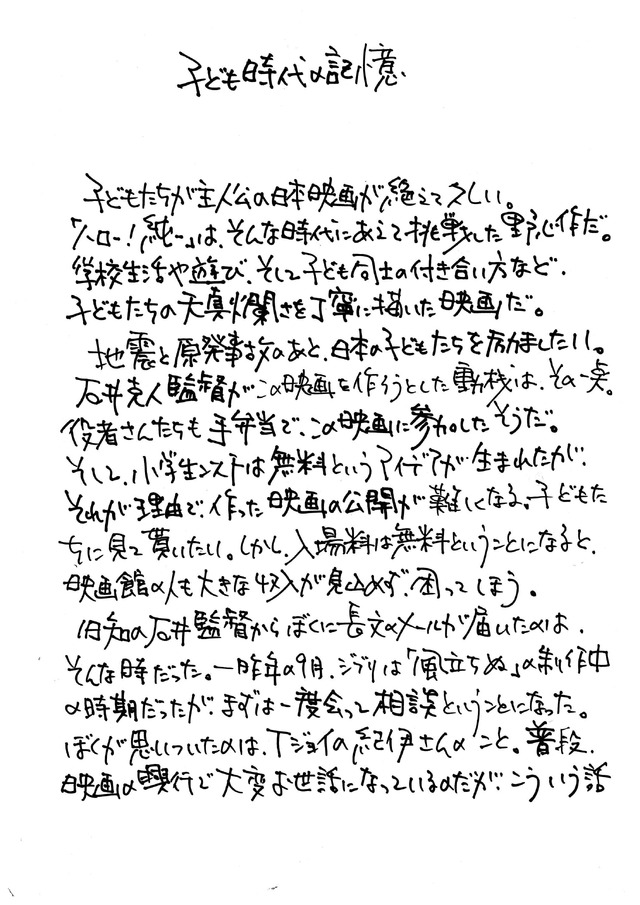 子ども時代の記憶
子どもたちが主人公の日本映画が絶えて久しい。
「ハロー!純一」は、そんな時代にあえて挑戦した野心作だ。
学校生活や遊び、そして子ども同士の付き合い方など、
子どもたちの天真爛漫さを丁寧に描いた映画だ。
地震と原発事故のあと、日本の子どもたちを励ましたい。
石井克人監督がこの映画を作ろうとした動機は、その一点。
役者さんたちも手弁当で、この映画に参加したそうだ。
そして、小学生以下は無料というアイデアが生まれたが、
それが理由で、作った映画の公開が難しくなる。子どもた
ちに見て貰いたい。しかし、入場料は無料ということになると、
映画館の人も大きな収入が見込めず、困ってしまう。
旧知の石井監督からぼくに長文のメールが届いたのは、
そんな時だった。一昨年の9月、ジブリは「風立ちぬ」の制作中
の時期だったが、まずは一度会って相談ということになった。
ぼくが思いついたのは、Tジョイの紀伊さんのこと。普段、
映画の興行で大変お世話になっているのだが、こういう話